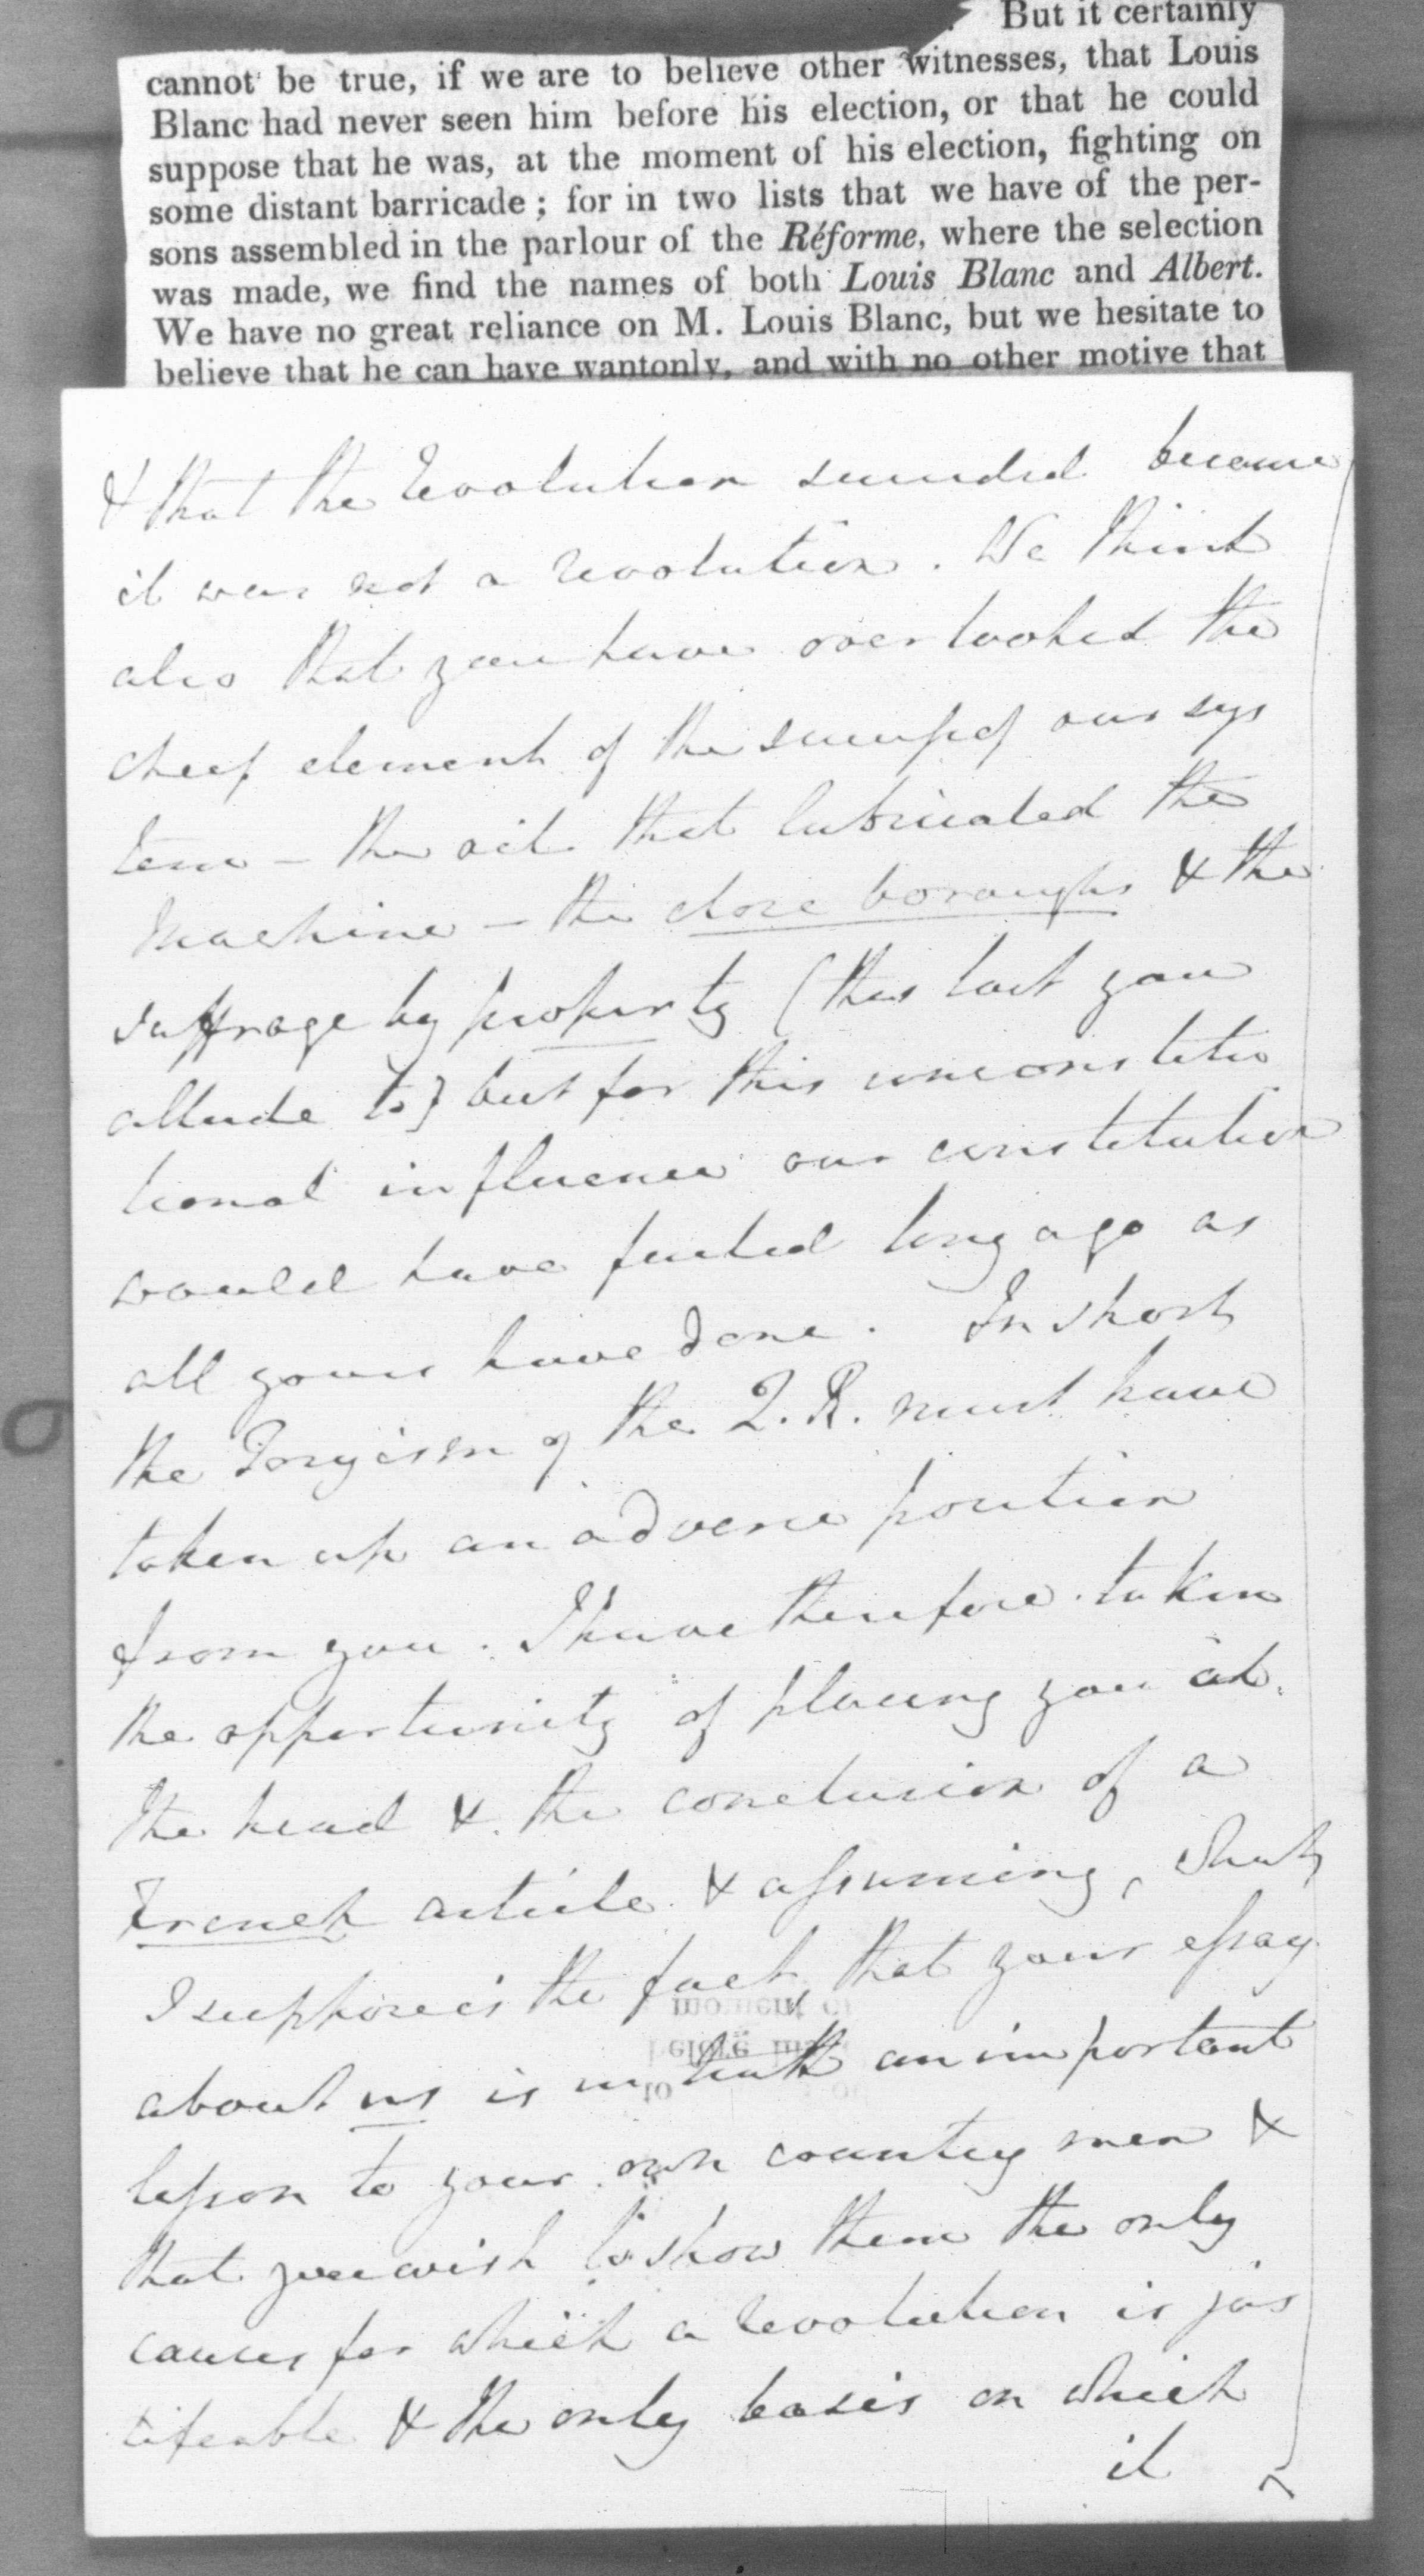 But it certainly
cannot be true, if we are to believe other witnesses, that Louis
Blanc had never seen him before his election, or that he could
suppose that he was, at the moment of his election, fighting on
some distant barricade; for in two lists that we have of the per-
sons assembled in the parlour of the Réforme, where the selection
was made, we find the names of both Louis Blanc and Albert.
We have no great reliance on M. Louis Blanc, but we hesitate to
believe that he can have wantonly, and with no other motive that
& that the Revolution succeeded because
it was not a revolution. We think
also that you have overlooked the
cheef element of the success of our sys
tem - the oil that lubricated the
Machine - the close boroughs & the
suffrage by property (this last you
allude to) but for this unconstitu
tional influence our constitution
would have failed long ago as
all yours have done. In short
the Toryism of the Q. R. must have
taken up an adverse position
from you. I have therefore taken
the opportunity of placing you at
the head & the conclusion of a
French article & assuming, what
I suppose is the fact, that your essay
about us is in truth an important
lesson to your own country men &
that you wish to show them the only
causes for which a revolution is jus
tifeable & the only basis on which
it
moment of
before his
to